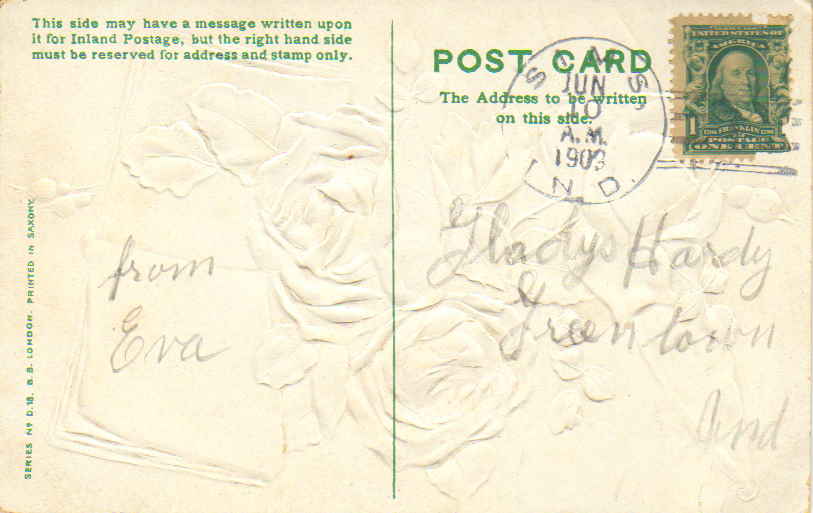 This side may have a message written upon
it for Inland Postage, but the right hand side
must be reserved for address and stamp only.
POST CARD
The Address to be written
on this side.
SIMS
JUN
10
A.M.
IND.
UNITED STATES OF
AMERICA
1
FRANKLIN
POSTAGE
ONE CENT
from
Eva
Gladys Hardy
Greentown
Ind
SERIES No D.18. B.B. LONDON. PRINTED IN SAXONY.